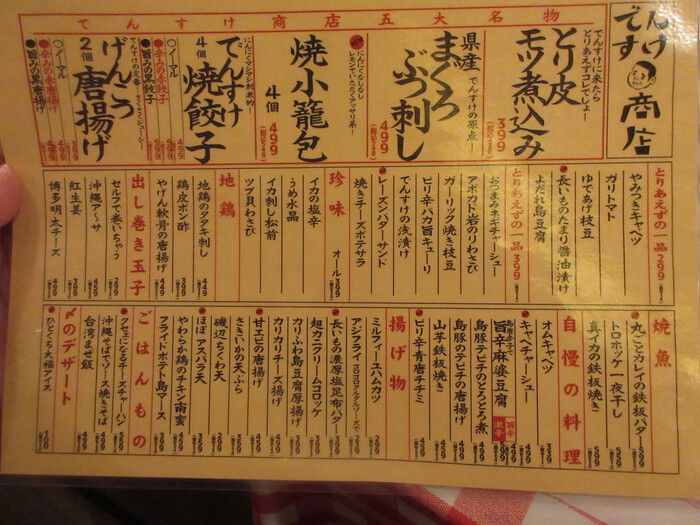 でんすけ商店
でんすけ商店五大名物
でんすけに来たら
とりあえずコレでしょー
とり皮
モツ煮込み
399
県産
でんすけの原点ー
まぐろ
ぶつ刺し
499
にんにくなしなし
レモンでいただくアッサリ系ー
焼小籠包
4個
499
にんにくアレマシ刺激的ー
でんすけ
焼餃子
4個
〇ノーマル
●辛みの赤餃子
●旨みの黒餃子
でんすけの定番
さくさくジューシー
げんこつ
唐揚げ
2個
〇ノーマル
●辛みの赤唐揚げ
●旨みの黒唐揚げ
とりあえずの一品 299
やみつきキャベツ
ガリトマト
ゆであげ枝豆
長いものたまり醤油漬け
よだれ島豆腐
とりあえずの一品 399
おつまみネギチャーシュー
アボカド岩のりわさび
ガーリック焼き枝豆
ピリ辛バカ旨キューリ
でんすけの浅漬け
レーズンバターサンド
焼きチーズポテサラ
珍味 オール399
イカの塩辛
うめ水晶
イカ刺し松前
ツブ貝わさび
地鶏
地鶏のタタキ刺し 449
鶏皮ポン酢 349
やげん軟骨の唐揚げ 449
出し巻き玉子
セルフで巻いちゃう 299
沖縄アーサ 499
紅生姜 499
博多明太チーズ 499
焼魚
丸ごとカレイの鉄板バター
トロホッケ一夜干し
真イカの鉄板焼き 599
自慢の料理
オムキャベツ 399
キャベチャーシュー 499
旨辛麻婆豆腐
旨辛
激辛
島豚テビチのとろとろ煮 499
島豚のテビチの唐揚げ 499
山芋鉄板焼き 499
ピリ辛青唐チヂミ 499
揚げ物
ミルフィーユハムカツ
アジフライ コロコロタルタルソースで
長いもの濃厚塩昆布バター
超カニクリームコロッケ
カリふわ島豆腐厚揚げ
カリカリチーズ揚げ
甘エビの唐揚げ
さきいかの天ぷら
磯辺ちくわ天
ほぼアスパラ天
やわらか鶏のチキン南蛮
フライドポテト島マース
ごはんもの
クセになるチーズチャーハン
沖縄そばでソース焼きそば
台湾まぜ飯
〆のデザート
ひとくち大福アイス